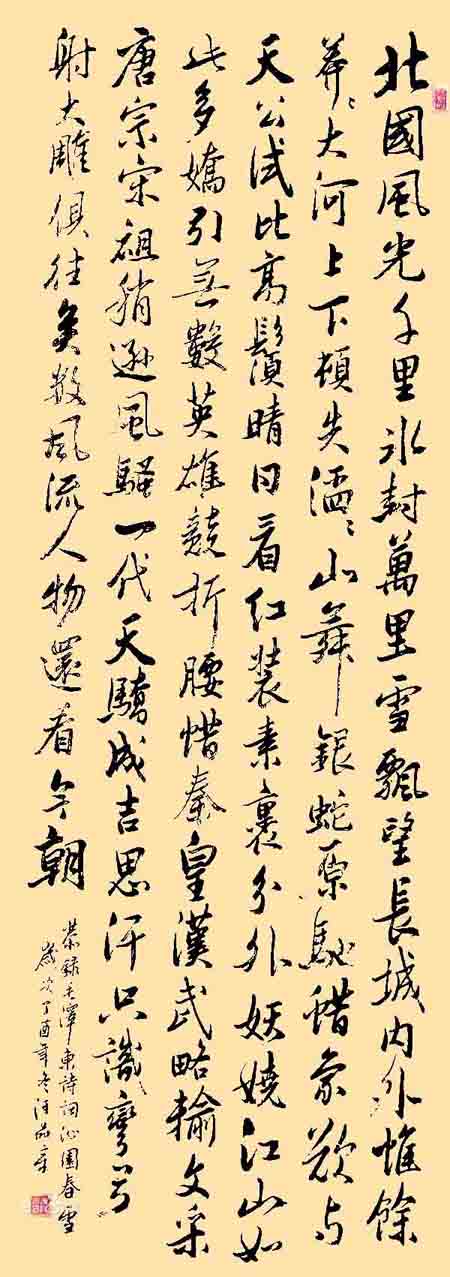 北國風光千里冰封萬里雪飄望長城内外惟餘
莽〻大河上下頓失滔〻山舞銀蛇原馳蜡象欲与
天公試比高鬚晴日看红装素裹分外妖嬈江山如
此多嬌引無數英雄競折腰惜秦皇漢武略輸文采
唐宗宋祖稍遜風騷一代天驕成吉思汗只識彎弓
射大雕俱往矣數風流人物還看今朝
恭録毛澤東詩詞沁園春雪
歲次丁酉年冬汪